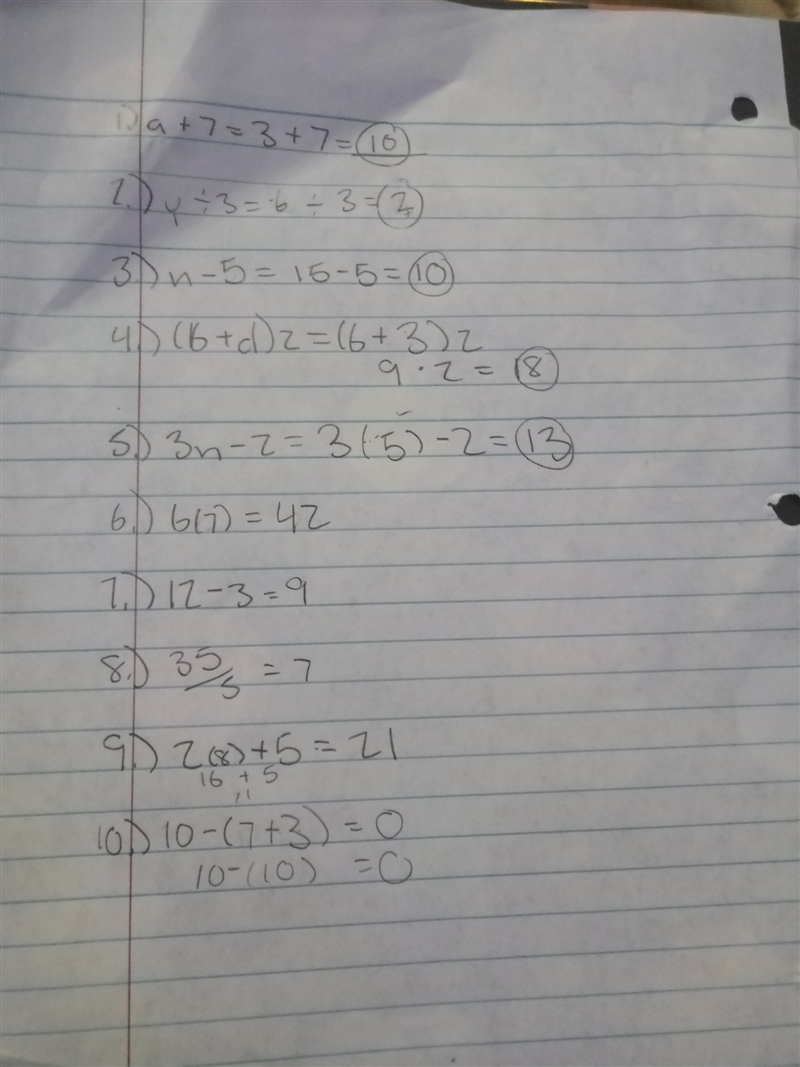 1.) a + 7 = 3 + 7 = 10
2.) y ÷ 3 = 6 ÷ 3 = 2
3.) n - 5 = 15 - 5 = 10
4.) (b + d) 2 = (6 + 3) 2
9 · 2 = 18
5.) 3n - 2 = 3(5) - 2 = 13
6.) 6(7) = 42
7.) 12 - 3 = 9
8.) 35/5 = 7
9.) 2(8) + 5 = 21
16 + 5
10.) 10 - (7 + 3) = 0
10 - (10) = 0